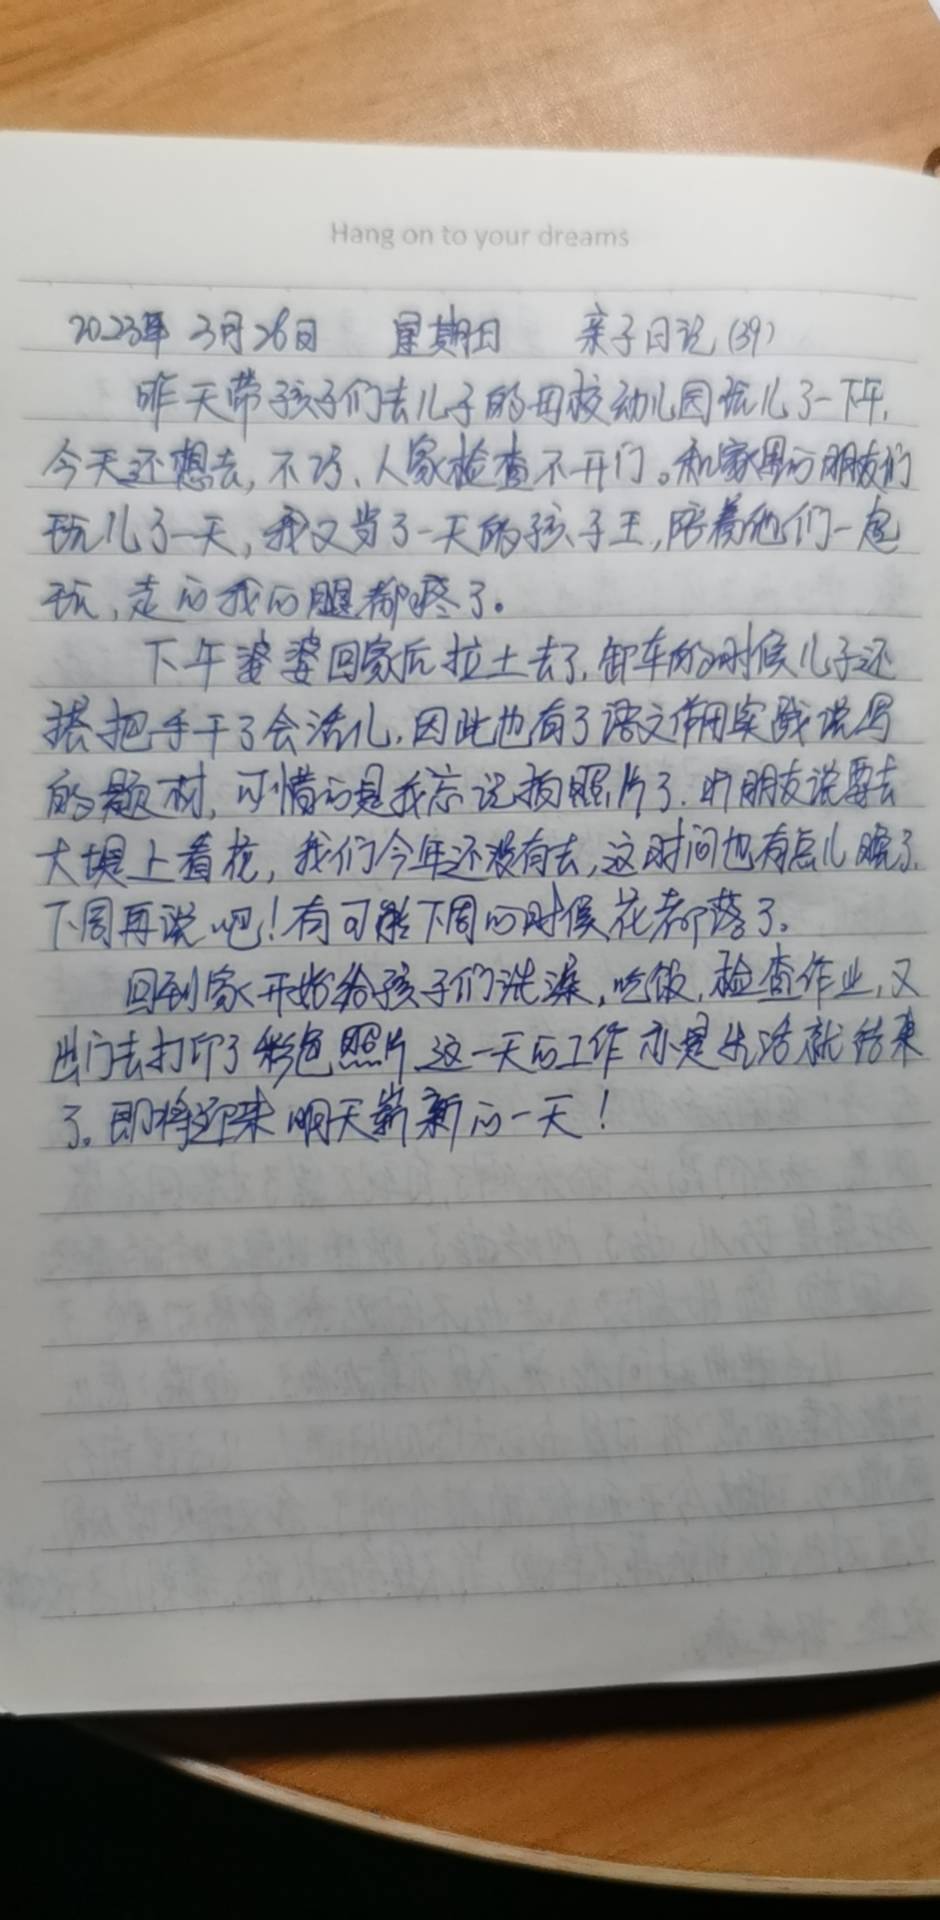 Hang on to your dreams
2023年 3月26日 星期日 亲子日记(39)
昨天带孩子们去儿子的母校幼儿园玩儿了一下午,
今天还想去,不巧、人家检查不开门。和家里的朋友们
玩儿了一天,我又当了一天的孩子王,陪着他们一起
玩,走的我的腿都疼了。
下午婆婆回家后拉土去了,卸车的时候儿子还
搭把手干了会活儿,因此也有了语文作用实践说写
的题材,可惜的是我忘记拍照片了.听朋友说要去
大堤上看花,我们今年还没有去,这时间也有点儿晚了.
下周再说吧!有可能下周的时候花都落了。
回到家开始给孩子们洗澡,吃饭,检查作业,又
出门去打印了彩色照片.这一天的工作亦是生活就结束
了。即将迎来明天崭新的一天!